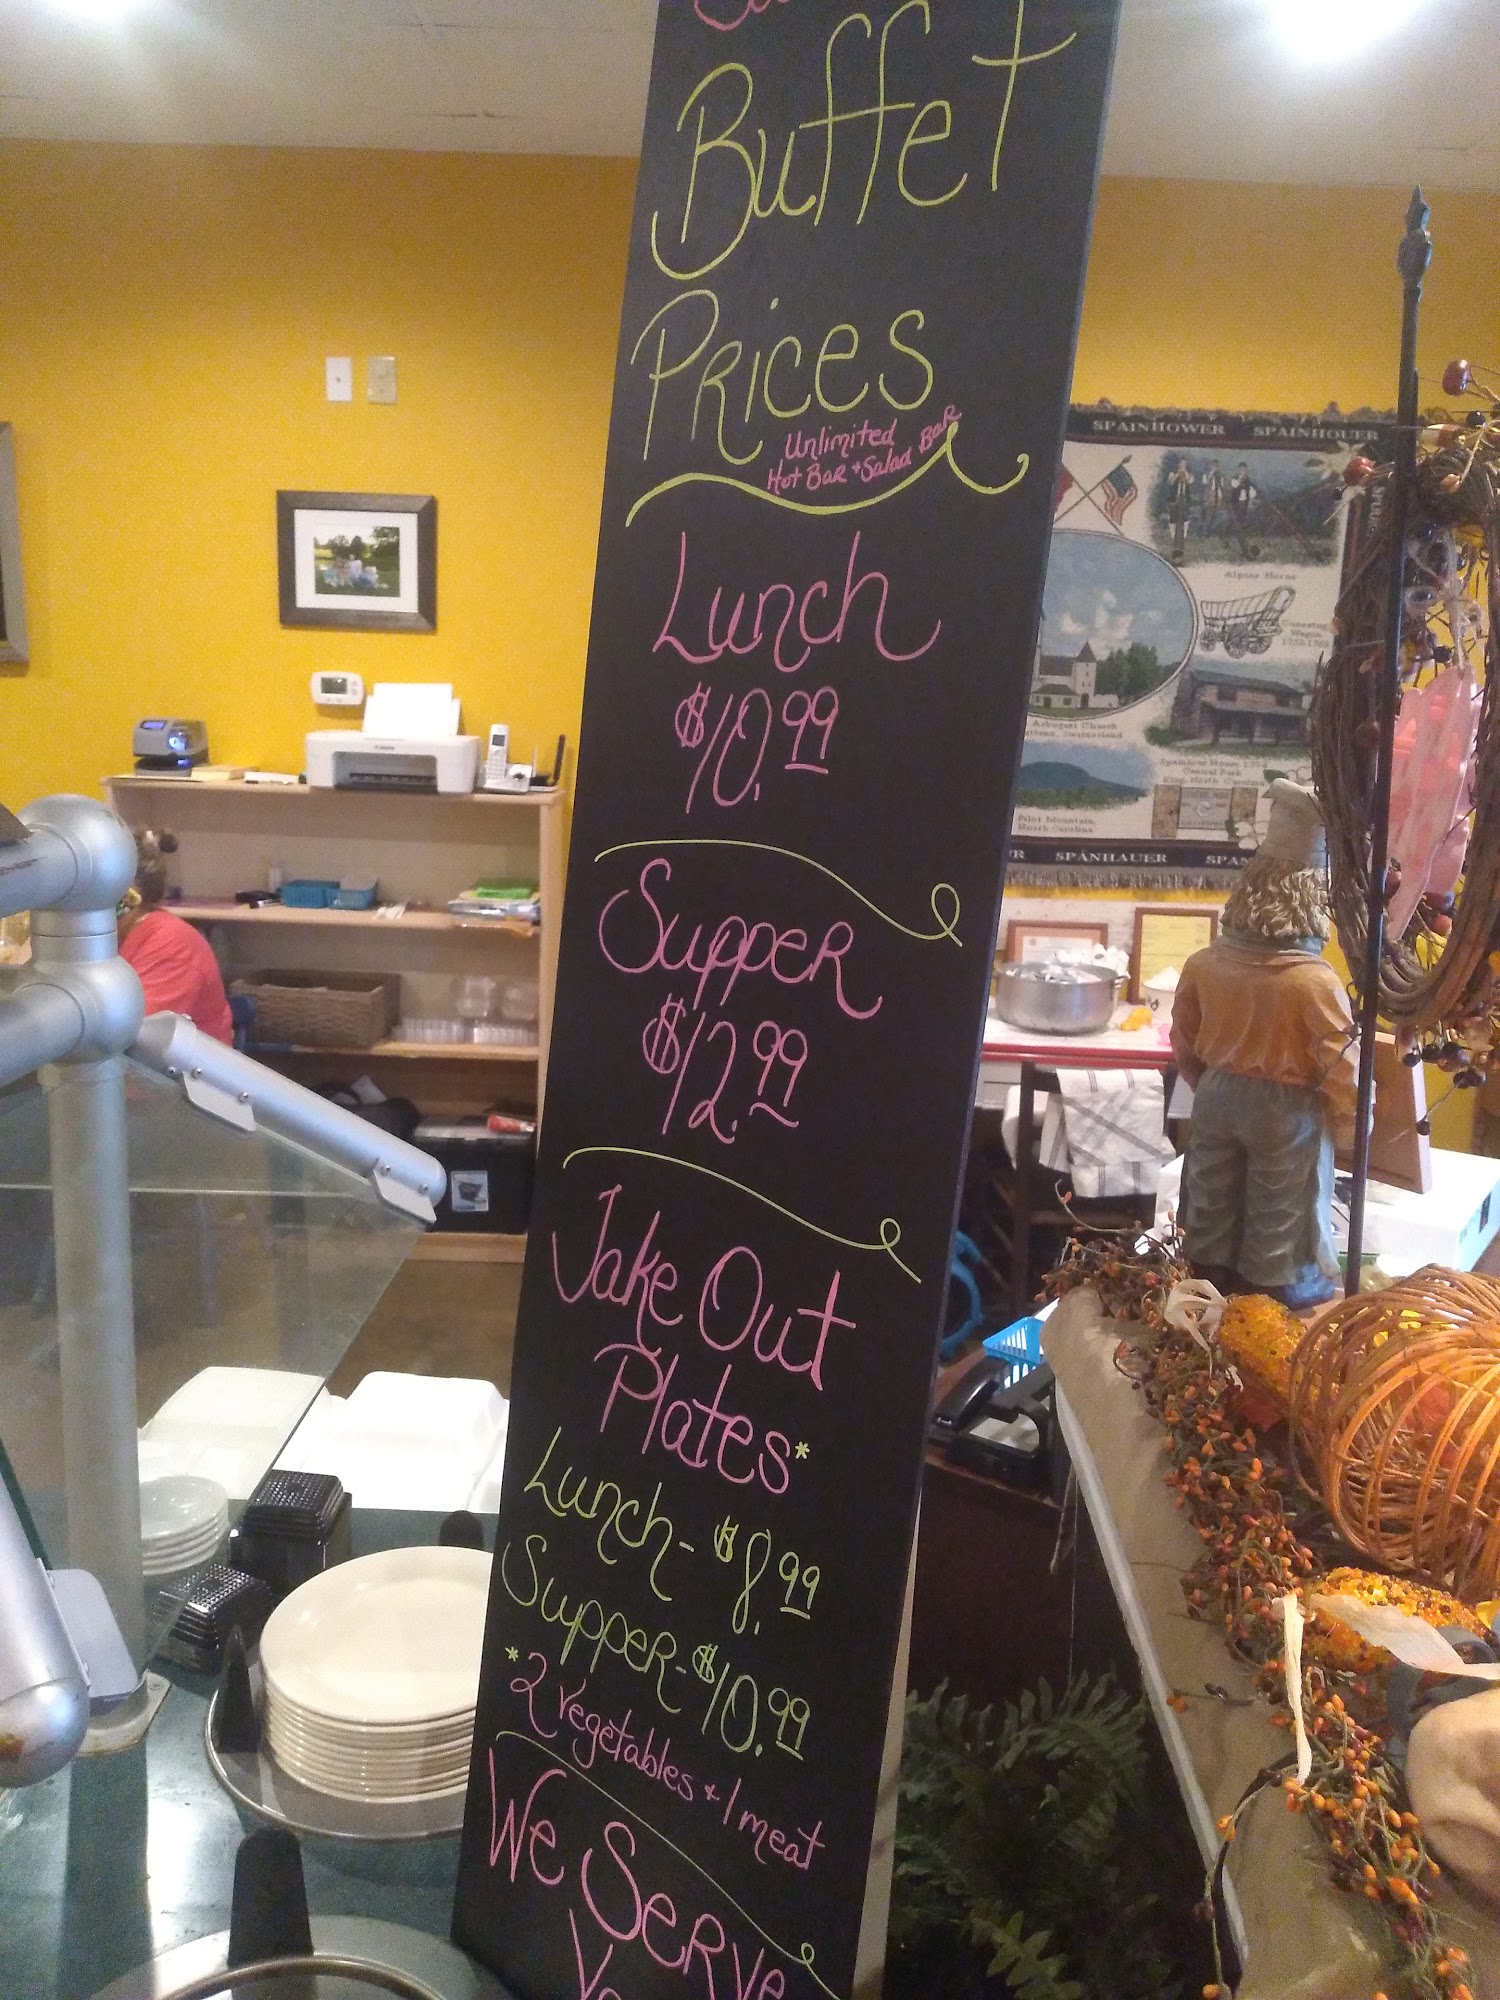 Buffet
Prices
Unlimited
Hot Bar + Salad Bar
Lunch
$10.99
Supper
$12.99
Take Out
Plates*
Lunch - $8.99
Supper - $10.99
*2 vegetables + 1 meat
We Serve
SPAINHOWER SPAINHOUER
Alpine Horns
Conestoga
Wagon
Arbogast Church
Switzerland
Spainhour House
Central Park
King, North Carolina
Pilot Mountain,
North Carolina
SPÄNHAUER
Canon